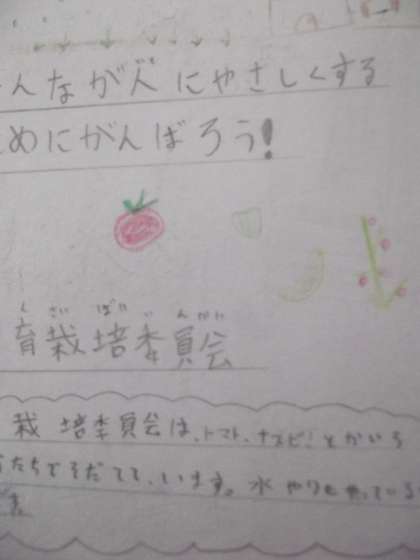 んなが人にやさしくする
めにがんばろう!
く さい ばい い んかい
育栽培委員会
栽培委員会は、トマト、ナスビ!とかいろ
たちでそだてて、います。水やりもやっている
す。